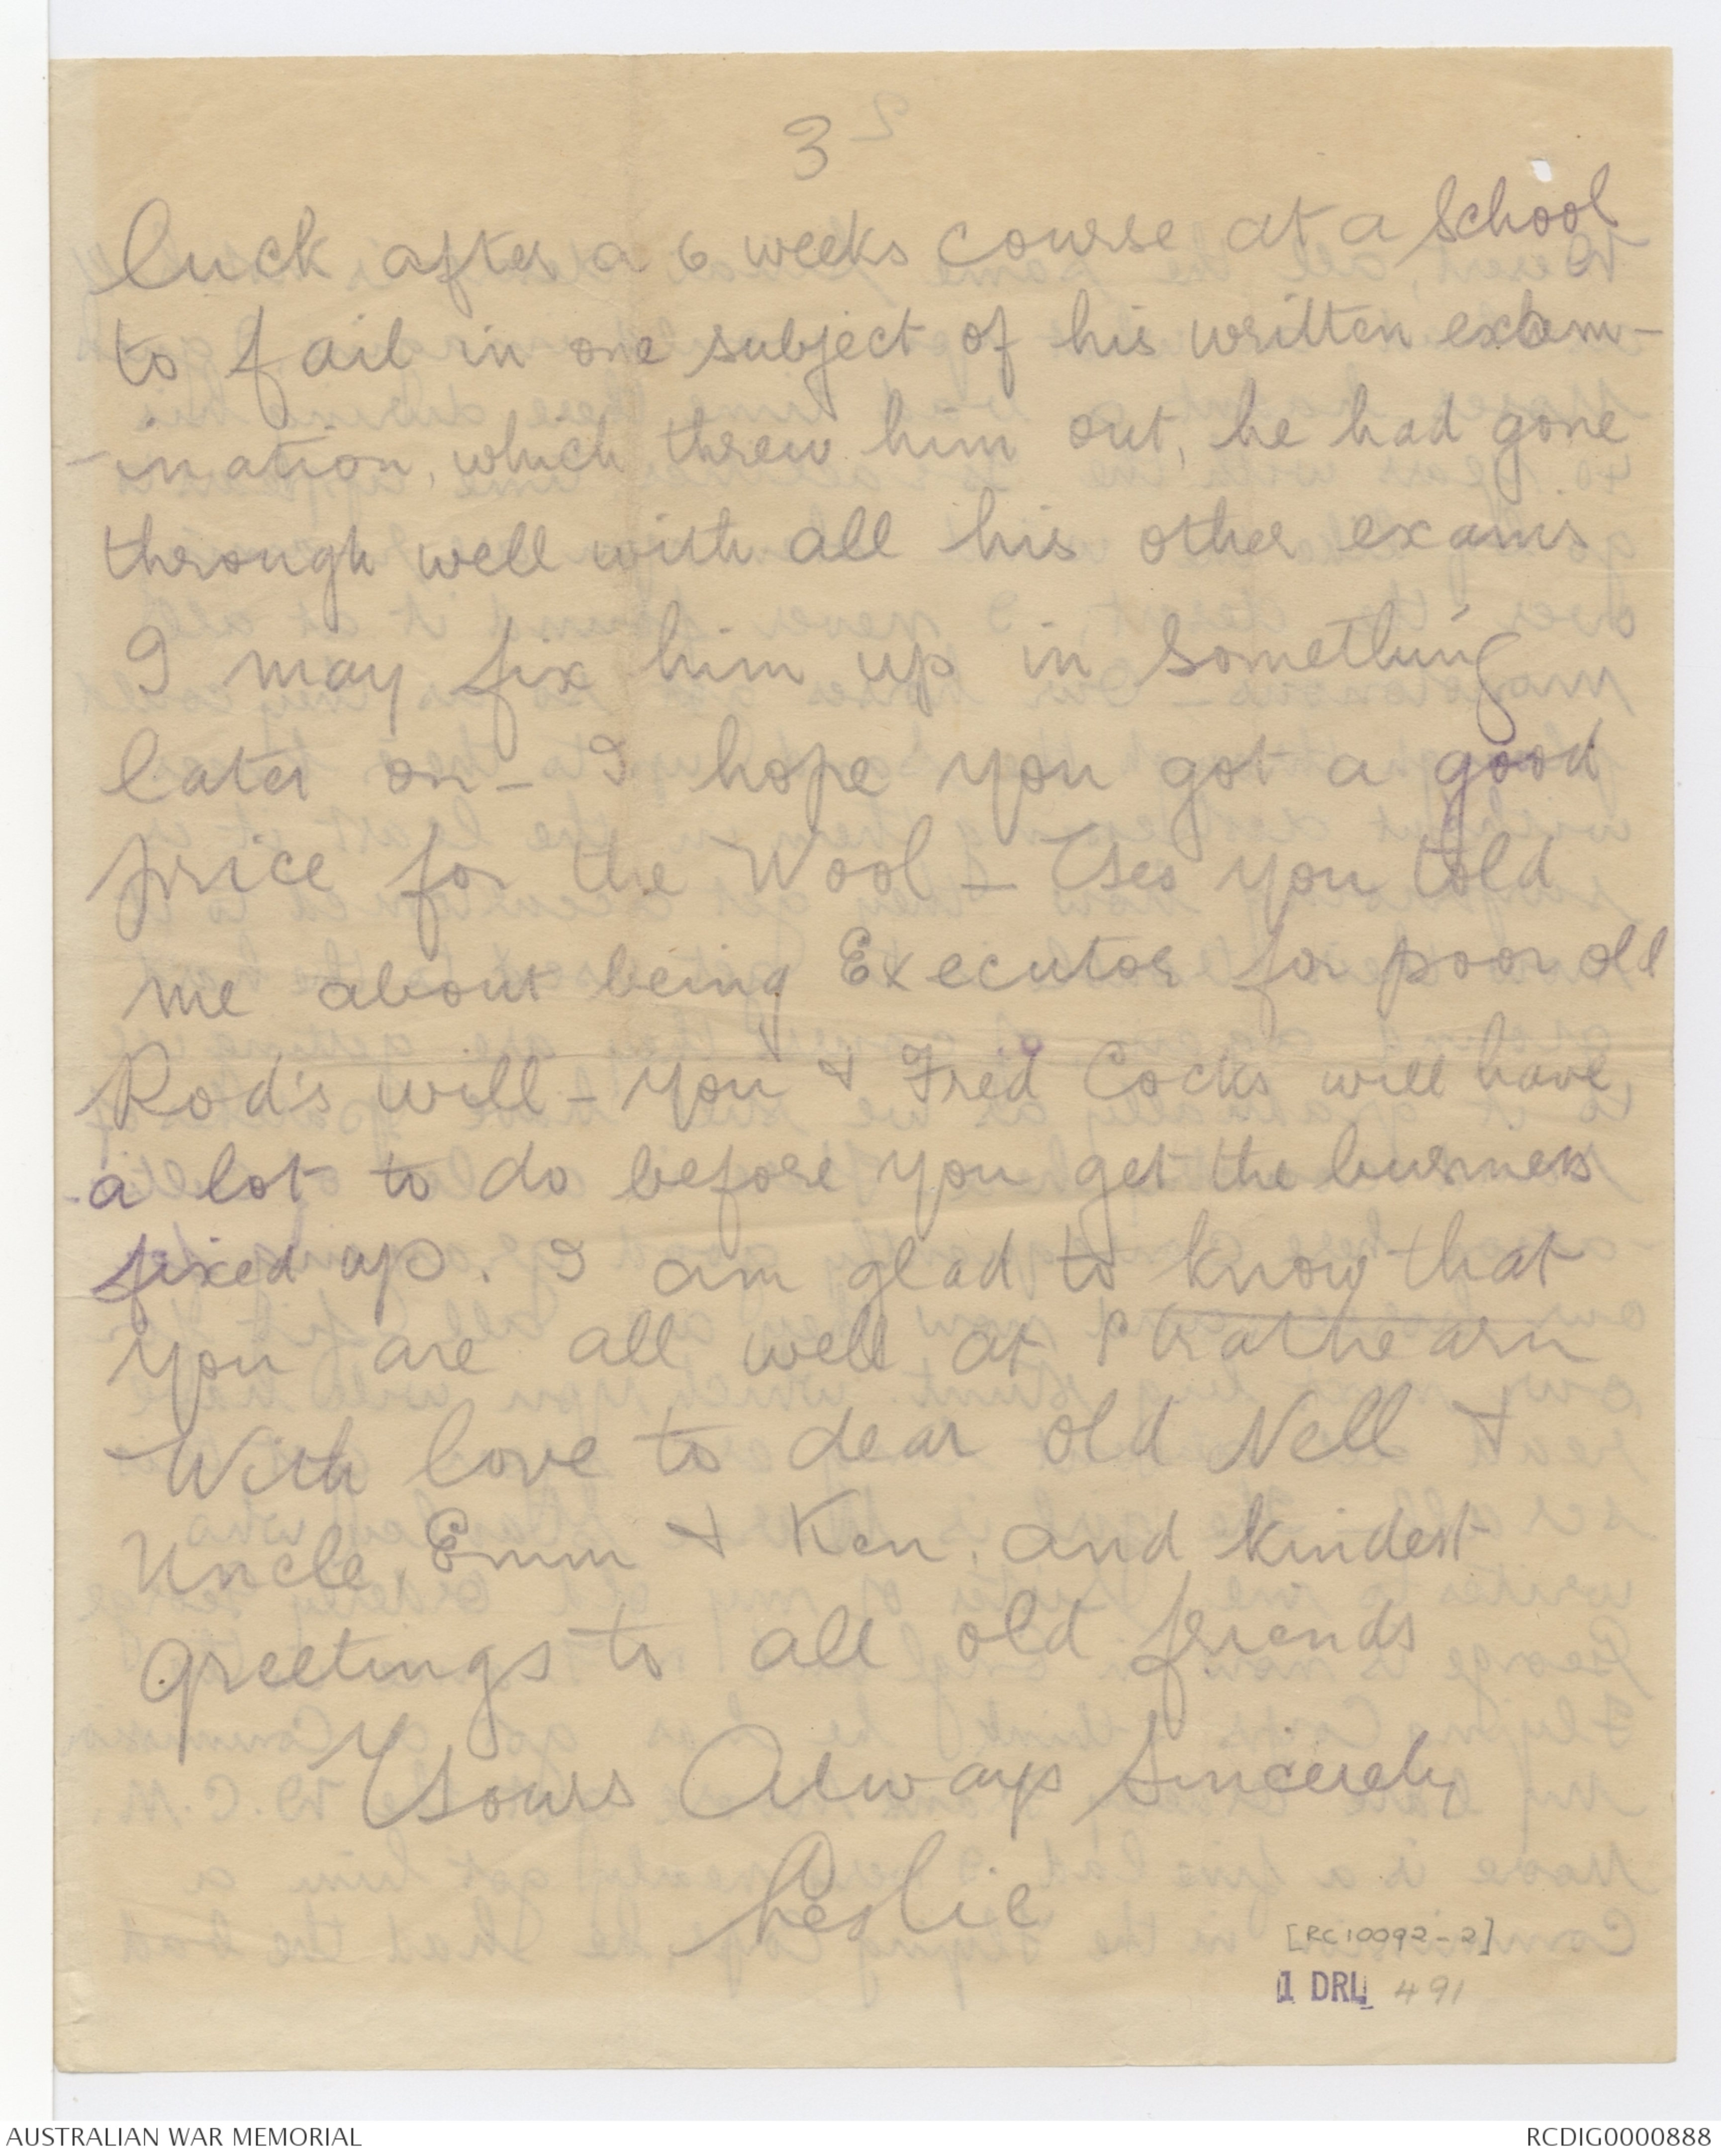 3
luck after a 6 weeks course at a School
to fail in one subject of his written exam-
-ination, which threw him out, he had gone
through well with all his other exams
I may fix him up in Something
later on - I hope you got a good
price for the Wool - Yes you told
me about being Executor for poor old
Rod's will - you & Fred Cocks will have
a lot to do before you get the business
fixed up. I am glad to know that
you are all well at Strathearn
With love to dear old Nell &
Uncle, Emm & Ken, and kindest
greetings to all old friends
Yours Always Sincerely
Leslie
[RC10092-2]
1 DRL 491
AUSTRALIAN WAR MEMORIAL
RCDIG0000888